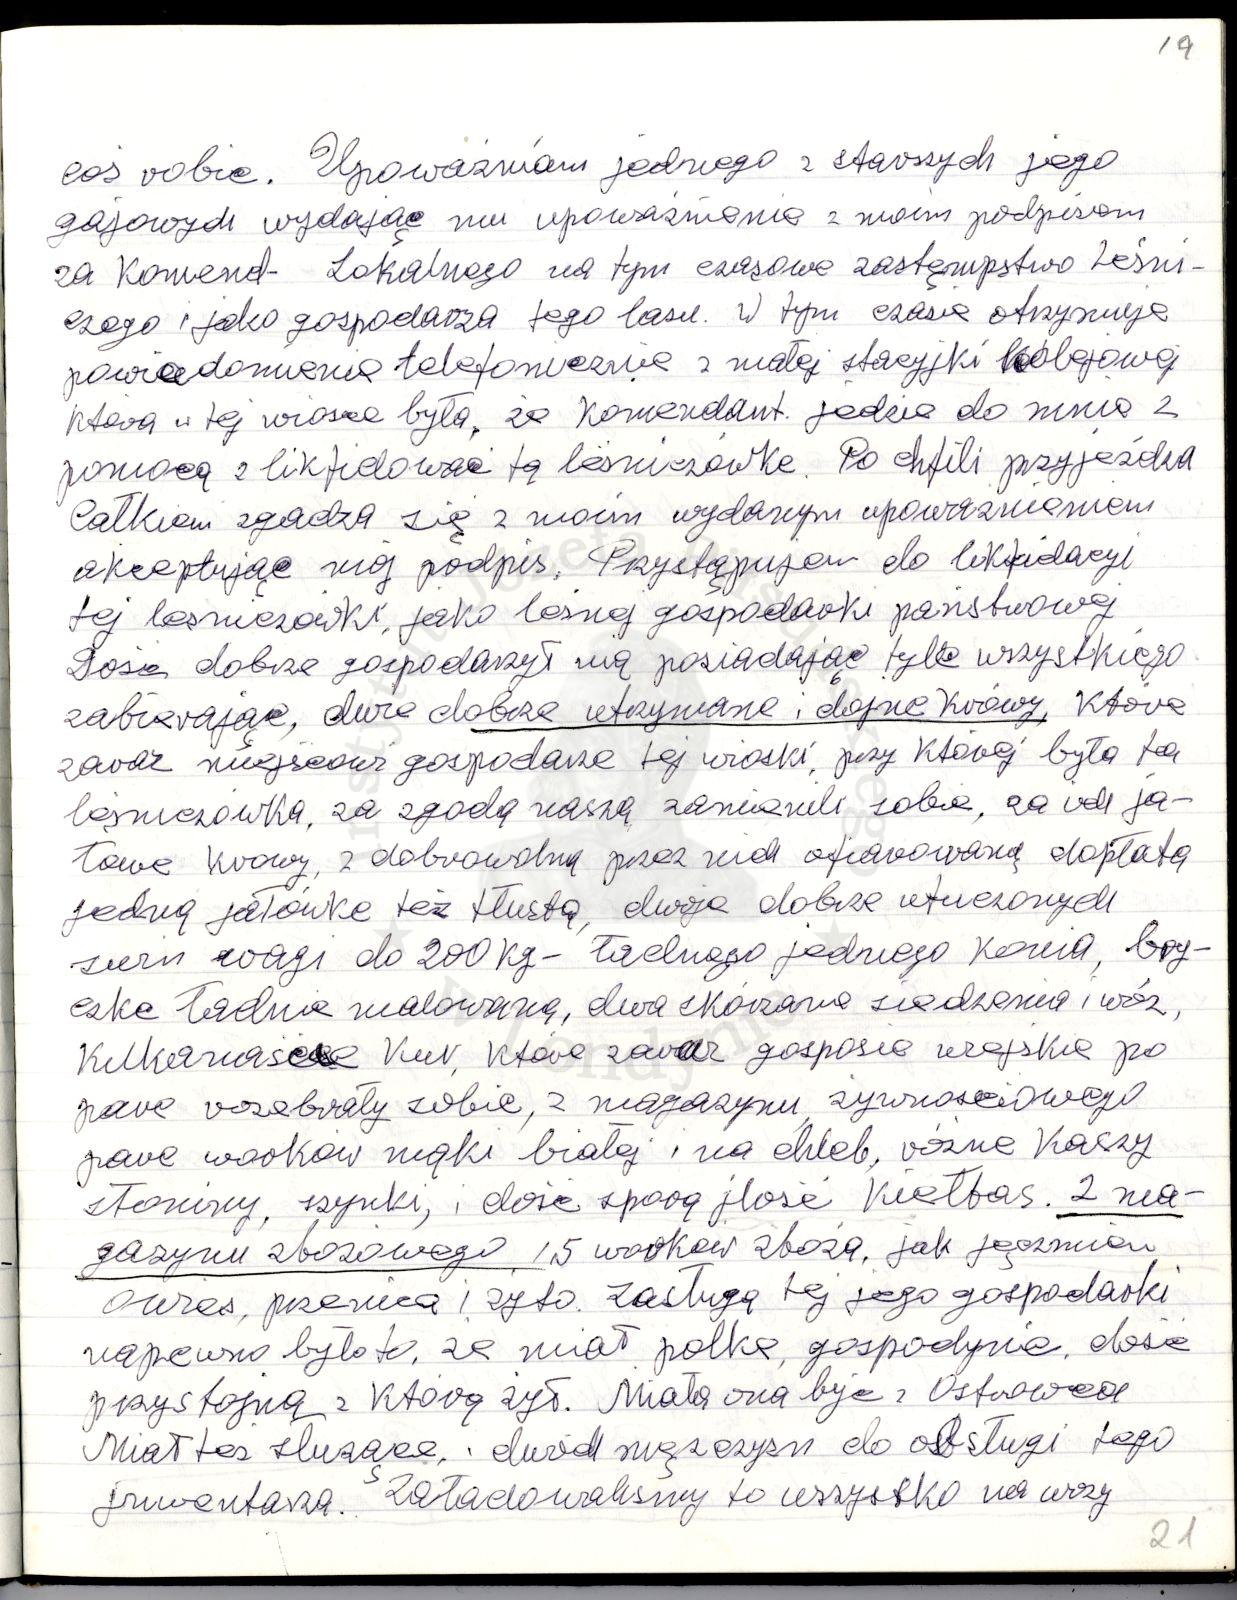 19
coś robic. Upoważniam jednego z starszych jego
gajowych wydając mu upoważnienie z moim podpisem
za Komend- Lokalnego na tym czasowe zastęmpstwo Leśni-
czego i jako gospodarza tego lasu. W tym czasie otrzymuje
powiadomienie telefonicznie z małej stacyjki kolejowej
która w tej wiosce była, że Komendant. jedzie do mnie z
pomocą zlikfidować tą leśniczówke. Po chfili przyjeżdża
Całkiem zgadza się z moim wydanym upoważnieniem
akceptując mój podpis. Przystąpujem do likfidacyi
tej leśniczówki, jako leśnej gospodarki państwowej
Dość dobrze gospodarzył nią posiadając tyle wszystkiego
zabierając, dwie dobrze utrzymane i dojne krówy, które
zaraz miejscowi gospodarze tej wioski, przy której była ta
leśniczówka, za zgodą naszą zamienili sobie, za ich ja-
łowe krowy, z dobrowolną przez nich ofiarowaną dopłatą
jedną jałówke też tłustą, dwoje dobrze utuczonych
świn wagi do 200 kg- ładnego jednego konia, bry-
czke ładnie malowaną, dwa skórzane siedzenia i wóz,
Kilkanaście kur, które zaraz gosposie wiejskie po
pare rozebrały sobie, z magazynu żywnościowego
pare workow mąki białej i na chleb, różne Kaszy
słoniny, szynki, i dość sporą jlość Kiełbas. Z ma-
gazynu zbożowego 15 workow zboża, jak jęczmien
owies, pszenica i żyto. Zasługą tej jego gospodarki
napewno było to, że miał polke, gospodynie, dość
przystojną z którą żył. Miała ona być z Ostrowca
Miał też służące, i dwóch męszczyzn do obsługi tego
jnwentarza. Załadowaliśmy to wszystko na wozy
21
Instytut Józefa Piłsudskiego
w Londynie